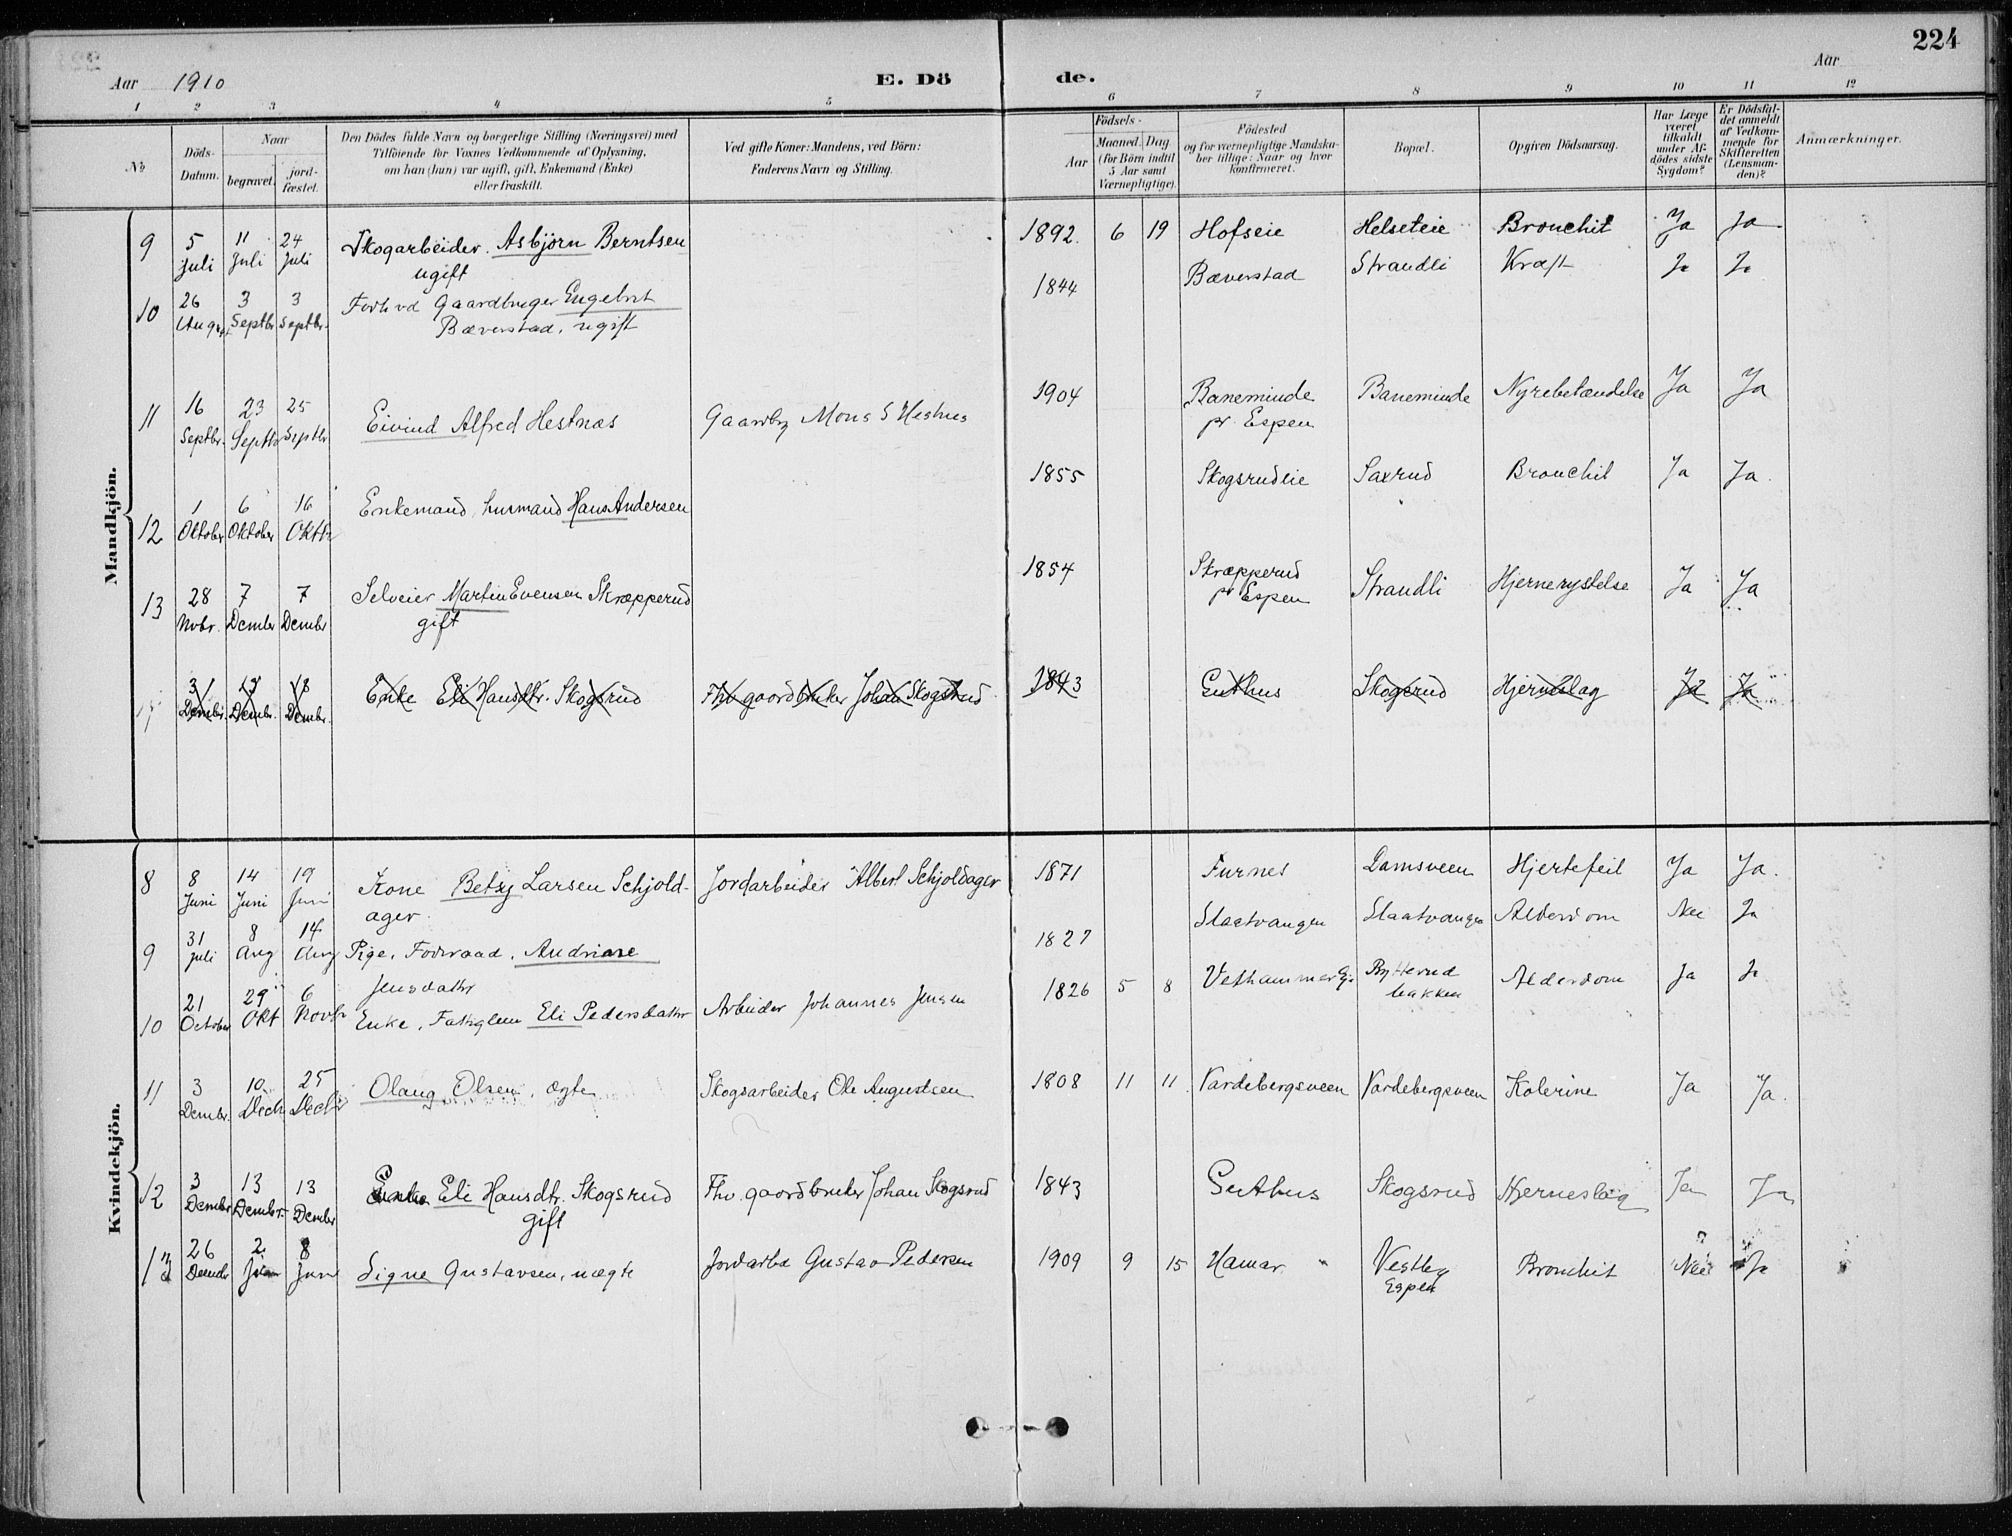 224
Aar 1910
E. Döde.
Aar
1 2 3 4 5 6 7 8 9 10 11 12
No
Döds-Datum.
Naar
begravet.
jord-fæstet.
Den Dödes fulde Navn og borgerlige Stilling (Næringsvei) med
Tilföiende for Voxnes Vedkommende af Oplysning,
om han (hun) var ugift, gift, Enkemand (Enke)
eller fraskilt.
Ved gifte Koner: Mandens, ved Börn:
Faderens Navn og Stilling.
Födsels-
Aar
Maaned. Dag
(for Börn indtil
5 Aar samt
Værnepligtige).
Födested
og for værnepligtige Mandska-
ber tillige: Naar og hvor
konfirmeret.
Bopæl.
Opgiven Dödsaarsag.
Har Læge
været
tilkaldt
under Af-
dödes sidste
Sygdom?
Er Dödsfal-
det anmeldt
af Vedkom-
mende for
Skifteretten
(Lensman-
den)?
Anmærkninger.
Mandkjön.
9 5 Juli 11 Juli 24 Juli Skogarbeider. Asbjørn Berntsen ugift 1892. 6 19 Hofseie Helseteie Bronchit Ja Ja
10 26 August 3 Septbr 3 Septbr. Forh.vd Gaardbruger Engebret Bæverstad, ugift 1844 Bæverstad Strandli Kræft Ja Ja
11 16 Septbr. 23 Septbr 25 Septbr Eivind Alfred Hestnæs Gaardbr Mons S Hestnes 1904 Baneminde pr. Espen Baneminde Nyrebetændelse Ja Ja
12 1 Oktober 6 Oktober 16 Oktbr Enkemand, husmand Hans Andersen 1855 Skogsrudeie Saxrud Bronchit Ja Ja.
13 28 Novbr. 7 Dembr 7 Dembr Selveier Martin Evensen Skræpperud gift 1854 Skræpperud pr Espen Strandli Hjernerystelse Ja Ja
3 Dembr. 13 Dembr. 13 Dembr. Enke Eli Hansdtr. Skogsrud Fhv gaardbruker Johan Skogsrud 1843 Guthus Skogsrud Hjerneslag Ja Ja
Kvindekjön.
8 8 Juni 14 Juni 19 Juni Kone Betzy Larsen Schjoldager. Jordarbeider Albert Schjoldager 1871 Furnes Damsveen Hjertefeil Ja Ja.
9 31 Juli 8 Aug 14 Aug Pige, Foderaad, Andriane Jensdatter 1827 Slaatvangen Slaatvangen Alderdom Nei Ja
10 21 October 29 Okt 6 Novbr Enke, Fattiglem Eli Pedersdatter Arbeider Johannes Jensen 1826 5 8 Vethammer Rytterud bakken Alderdom Ja Ja
11 3 Dembr. 10 Decbr 25 Decbr Olaug Olsen, ægte Skogsarbeider Ole Augustsen 1808 11 11 Vardebergsveen Vardebergsveen Kolerine Ja Ja.
12 3 Dembr 13 Dembr. 13 Dembr Enke Eli Hansdtr. Skogsrud gift Fhv. gaardbruker Johan Skogsrud 1843 Guthus Skogsrud Hjerneslag Ja Ja
13 26 Dembr 2 Jan 8 Jan Signe Gustavsen, uægte Jordarbd Gustav Pedersen 1909 9 15 Hamar Vestby Espen Bronchit Nei Ja